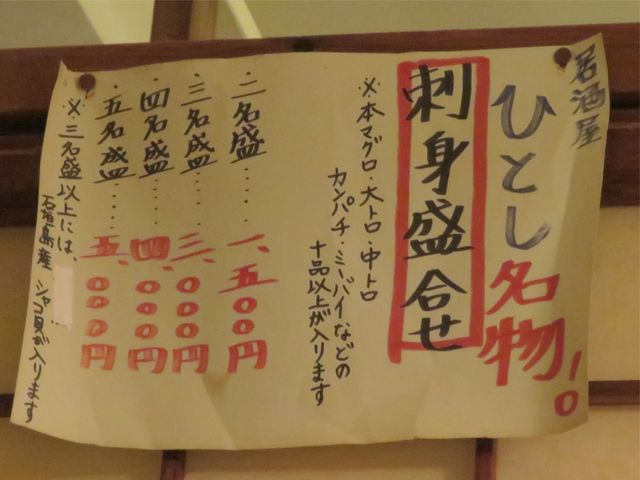 居酒屋
ひとし名物!。
刺身盛合せ
※本マグロ・大トロ・中トロ
カンパチ・ミーバイなどの
十品以上が入ります
・二名盛・・・・・一、五〇〇円
・三名盛・・・・・三、〇〇〇円
・四名盛・・・・・四、〇〇〇円
・五名盛・・・・・五、〇〇〇円
※三名盛以上には、
石垣島産 シャコ貝が入ります